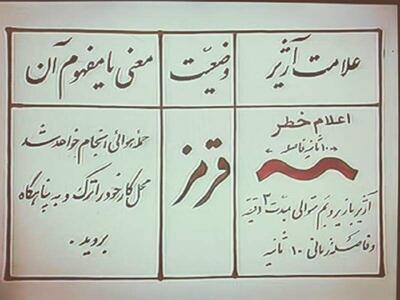 علامت آژیر
وضعیّت
معنی یا مفهوم آن
اعلام خطر
۱۰ ثانیه فاصله
آژیر با زیر و بم متوالی بمدت ۳ دقیقه
و فاصله زمانی ۱۰ ثانیه
قرمز
حمله هوائی انجام خواهد شد
محل کار خود را ترک و به پناهگاه
بروید.